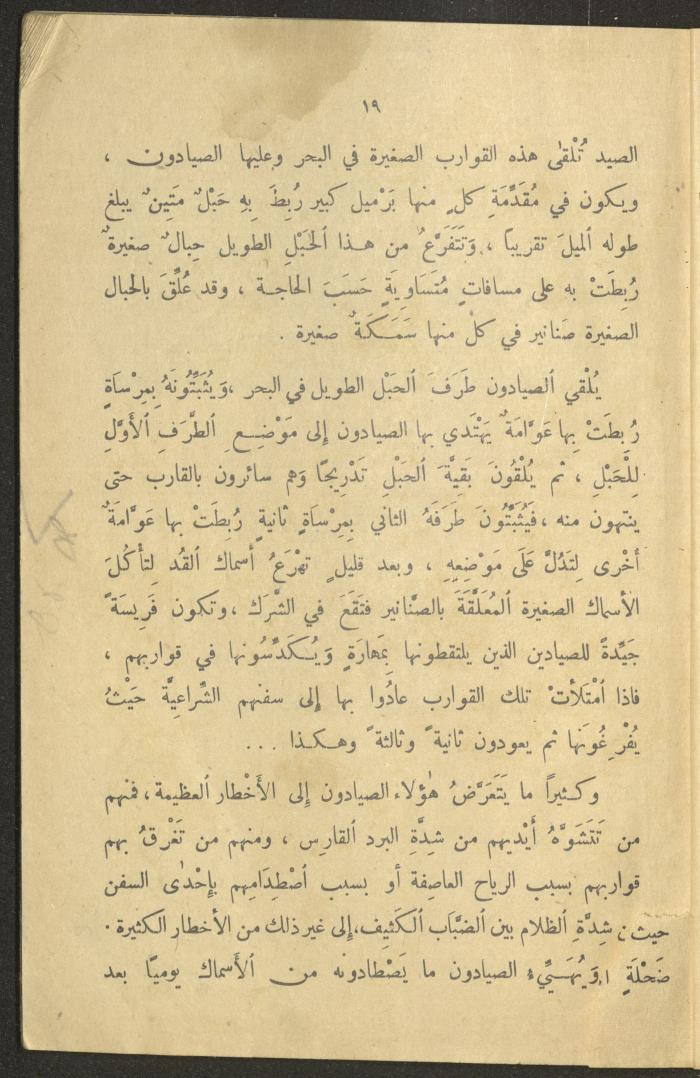 ١٩
الصيد تُلْقى هذه القوارب الصغيرة في البحر وعليها الصيادون ،
ويكون في مُقَدَّمَةِ كلٍ منها بَرْميل كبير رُبِطَ بِهِ حَبْلٌ مَتِينٌ يبلغ
طوله ٱلميلَ تقريباً ، وَتَتَفَرَّعُ من هــذا ٱلحَبْلِ الطويل حِبالٌ صغيرةٌ
رُبِطَتْ به على مسافاتٍ مُتَسَاوِيَةٍ حَسَبَ الحاجـة ، وقد عُلِّقَ بالحبال
الصغيرة صَنانير في كلّ منها سَمَـكَـةٌ صغيرة .
يُلْقي ٱلصيادون طَرَفَ ٱلحَبْل الطويل في البحر ،وَيُثَبِّتُونَهُ بِمِرْسَاةٍ
رُبِطَتْ بِها عَوَّامَةٌ يَهْتَدي بها الصيادون إلى مَوْضِـعِ ٱلطَّرَفِ ٱلأَوَّلِ
لِلْحَبْلِ ، ثم يُلْقُونَ بَقِيَّةَ ٱلحَبْلِ تَدْرِيجًا وَهم سائرون بالقارب حتى
ينتهون منه ،فَيُثَبِّتُونَ طَرَفَهُ الثاني بِمِرْساةٍ ثانيةٍ رُبِطَتْ بها عَوَّامَةٌ
أخْرى لِتَدُلَّ عَلَى مَوْضِعِهِ ، وبعد قليلٍ تهْرَعُ أسماك ٱلقُد لِتأكُلَ
الأسماك الصغيرة ٱلمُعَلَّقَةَ بالصَّنانير فتَقَعَ في الشَّرَك ،وتكون فَرِيسَةً
جَيِّدةً للصيادين الذين يلتقطونها بِمَهارَةٍ وَيُـكَدِّسُونها في قواربهم ،
فاذا ٱمْتَلأتْ تلك القوارب عادُوا بها إلى سفنهم الشِّراعِيَّة حَيْثُ
يُفْرِغُونَها ثم يعودون ثانيةً وثالثةً وهـكـذا ...
وكـثيراً ما يَتَعَرَّضُ هٰؤلاء الصيادون إلى الأَخْطار ٱلعظيمة ،فمنهم
من تَتَشَوَّهُ أيْديهم من شِدَّةِ البرد ٱلقارس ، ومنهم من تَغْرقُ بهم
قواربهم بسبب الرياح العاصِفة أو بسبب ٱصْطِدَامِهم بإحْدَى السفن
حيث شِدَّةِ ٱلظلام بين ٱلضَّبَاب ٱلكَثِيف،إلى غير ذلك من الأخطار الكثيرة .
ضَحْلَةٍ وَيُهَـيِّيءُ الصيادون ما يَصْطادونه من ٱلأسماك يوميًا بعد